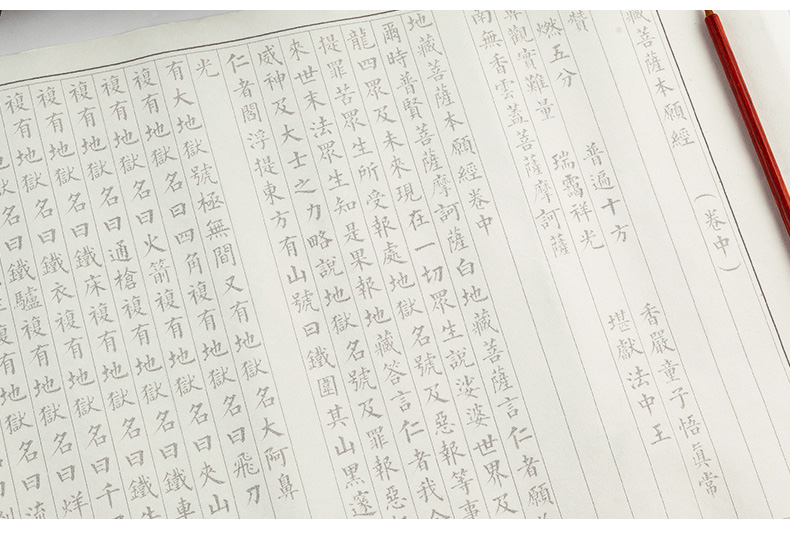 藏菩薩本願經 (卷中)
讚
燃五分 普遍十方 香嚴童子悟眞常
觀實難量 瑞靄祥光 堪獻法中王
南無香雲蓋菩薩摩訶薩
地藏菩薩本願經卷中
爾時普賢菩薩摩訶薩白地藏菩薩言仁者願
龍四眾及未來現在一切眾生說娑婆世界及
從罪苦眾生所受報處地獄名號及惡報等事
來世末法眾生知是果報地藏答言仁者我今
威神及大士之力略說地獄名號及罪報惡
仁者閻浮提東方有山號曰鐵圍其山黑邃
光
有大地獄號極無間又有地獄名大阿鼻
複有地獄名曰四角複有地獄名曰飛刀
複有地獄名曰火箭複有地獄名曰夾山
複有地獄名曰通槍複有地獄名曰鐵車
複有地獄名曰鐵床複有地獄名曰鐵牛
複有地獄名曰鐵衣複有地獄名曰千
地獄名曰鐵驢複有地獄名曰烊
有地獄名曰流